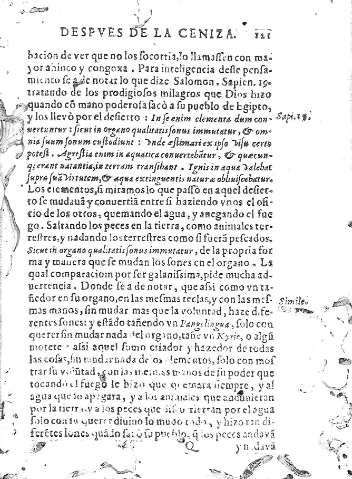 DESPVES DE LA CENIZA. 121
bacion de ver que no los socorria, lo llamassen con ma
yor ahinco y congoxa. Para inteligencia deste pensa-
miento se á de notar lo que dize Salomon. Sapien. 19.
tratando de los prodigiosos milagros que Dios hizo
quando cõ mano poderosa sacò a su pueblo de Egipto,
y los llevò por el desierto: In se enim elementa dum con
uertuntur: sicut in organo qualitatis sonus immutatur, & om
nia suum sonum custodiunt: Vnde estimari ex ipso visu certo
potest. Agrestia enim in aquatica conuertebãtur, & quæcun
q; erant natantia, in terram transibant. Ignis in aqua valebat
supra suã virtutem, & aqua extinguentis naturæ obliuiscebatur.
Los elementos, si miramos lo que passó en aquel desier
to se mudauã y conuertiã entre si haziendo vnos el ofi
cio de los otros, quemando el agua, y anegando el fue
go. Saltando los peces en la tierra, como animales ter-
restres, y nadando los terrestres como si fuerã pescados.
Sicut in organo qualitatis sonus immutatur, de la propria for
ma y manera que se mudan los sones en el organo. La
qual comparacion por ser galanissima, pide mucha ad-
uertencia. Donde se á de notar, que asi como vn ta-
ñedor en su organo, en las mesmas teclas, y con las mes
mas manos, sin mudar mas que la voluntad, haze dife-
rentes sones: y estãdo tañendo vn Pangelingua, solo con
querer sin mudar nada del organo, tañe vn Kyrie, o algũ
motete: assi aquel sumo criador y hazedor de todas
las cosas, sin mudar nada de los elementos, solo con mos
trar su volũtad, con las mesmas manos de su poder que
tocando el fuego le hizo que quemara siempre, y al
agua que lo apagara, y a los animales que anduuieran
por la tierra, y a los peces que
solo con su querer diuino lo mudò todo, y hizo tan di
ferẽtes sones quãdo sacò su pueblo, q̃ los peces andauã
Q y nadauã
Sapi. 19.
Simile.